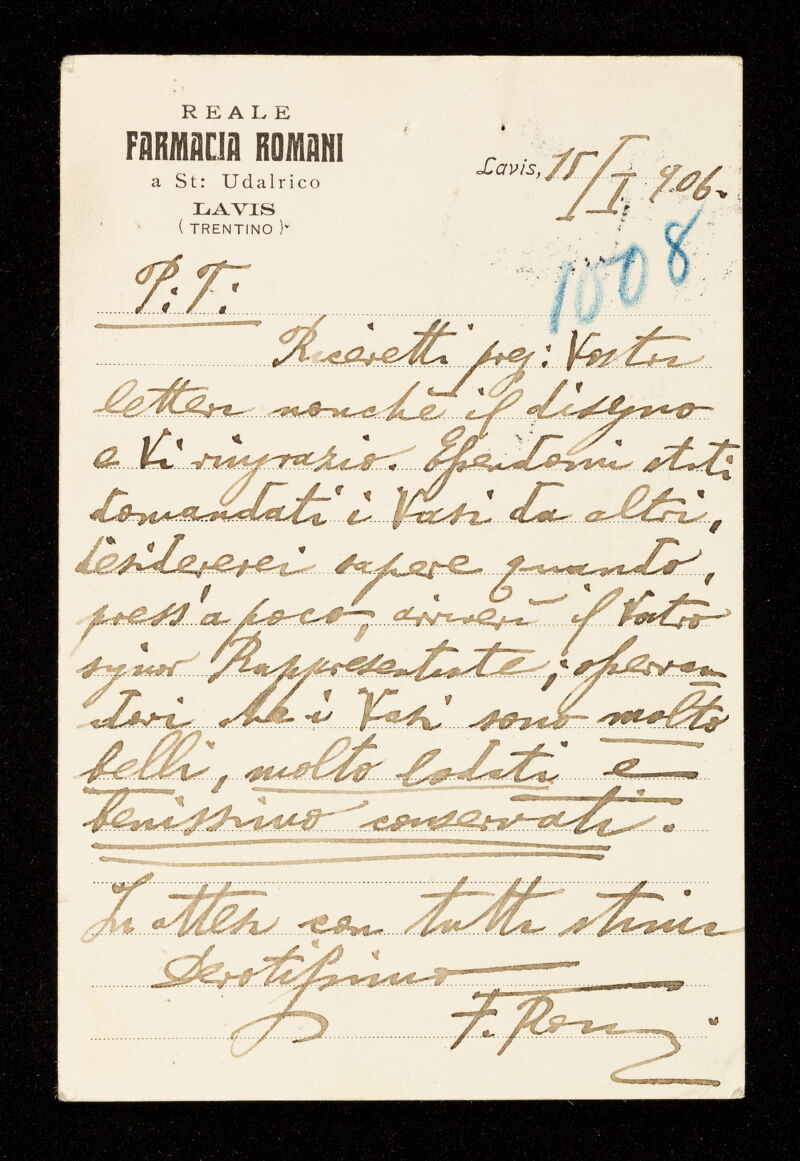 REALE
FARMACIA ROMANI
a St: Udalrico
LAVIS
(TRENTINO)
Lavis, 15/I 906.
1008
P. T.
Ricevetti preg: Vostra
lettera nonchè il disegno
e Vi ringrazio. Essendomi stati
domandati i Vasi da altri,
desidererei sapere quando,
press'a poco, arriverà il Vostro
signor Rappresentante; osservan
dovi che i Vasi sono molto
belli, molto lodati e
benissimo conservati.
In attesa con tutta stima
Devotissimo
F. Romani